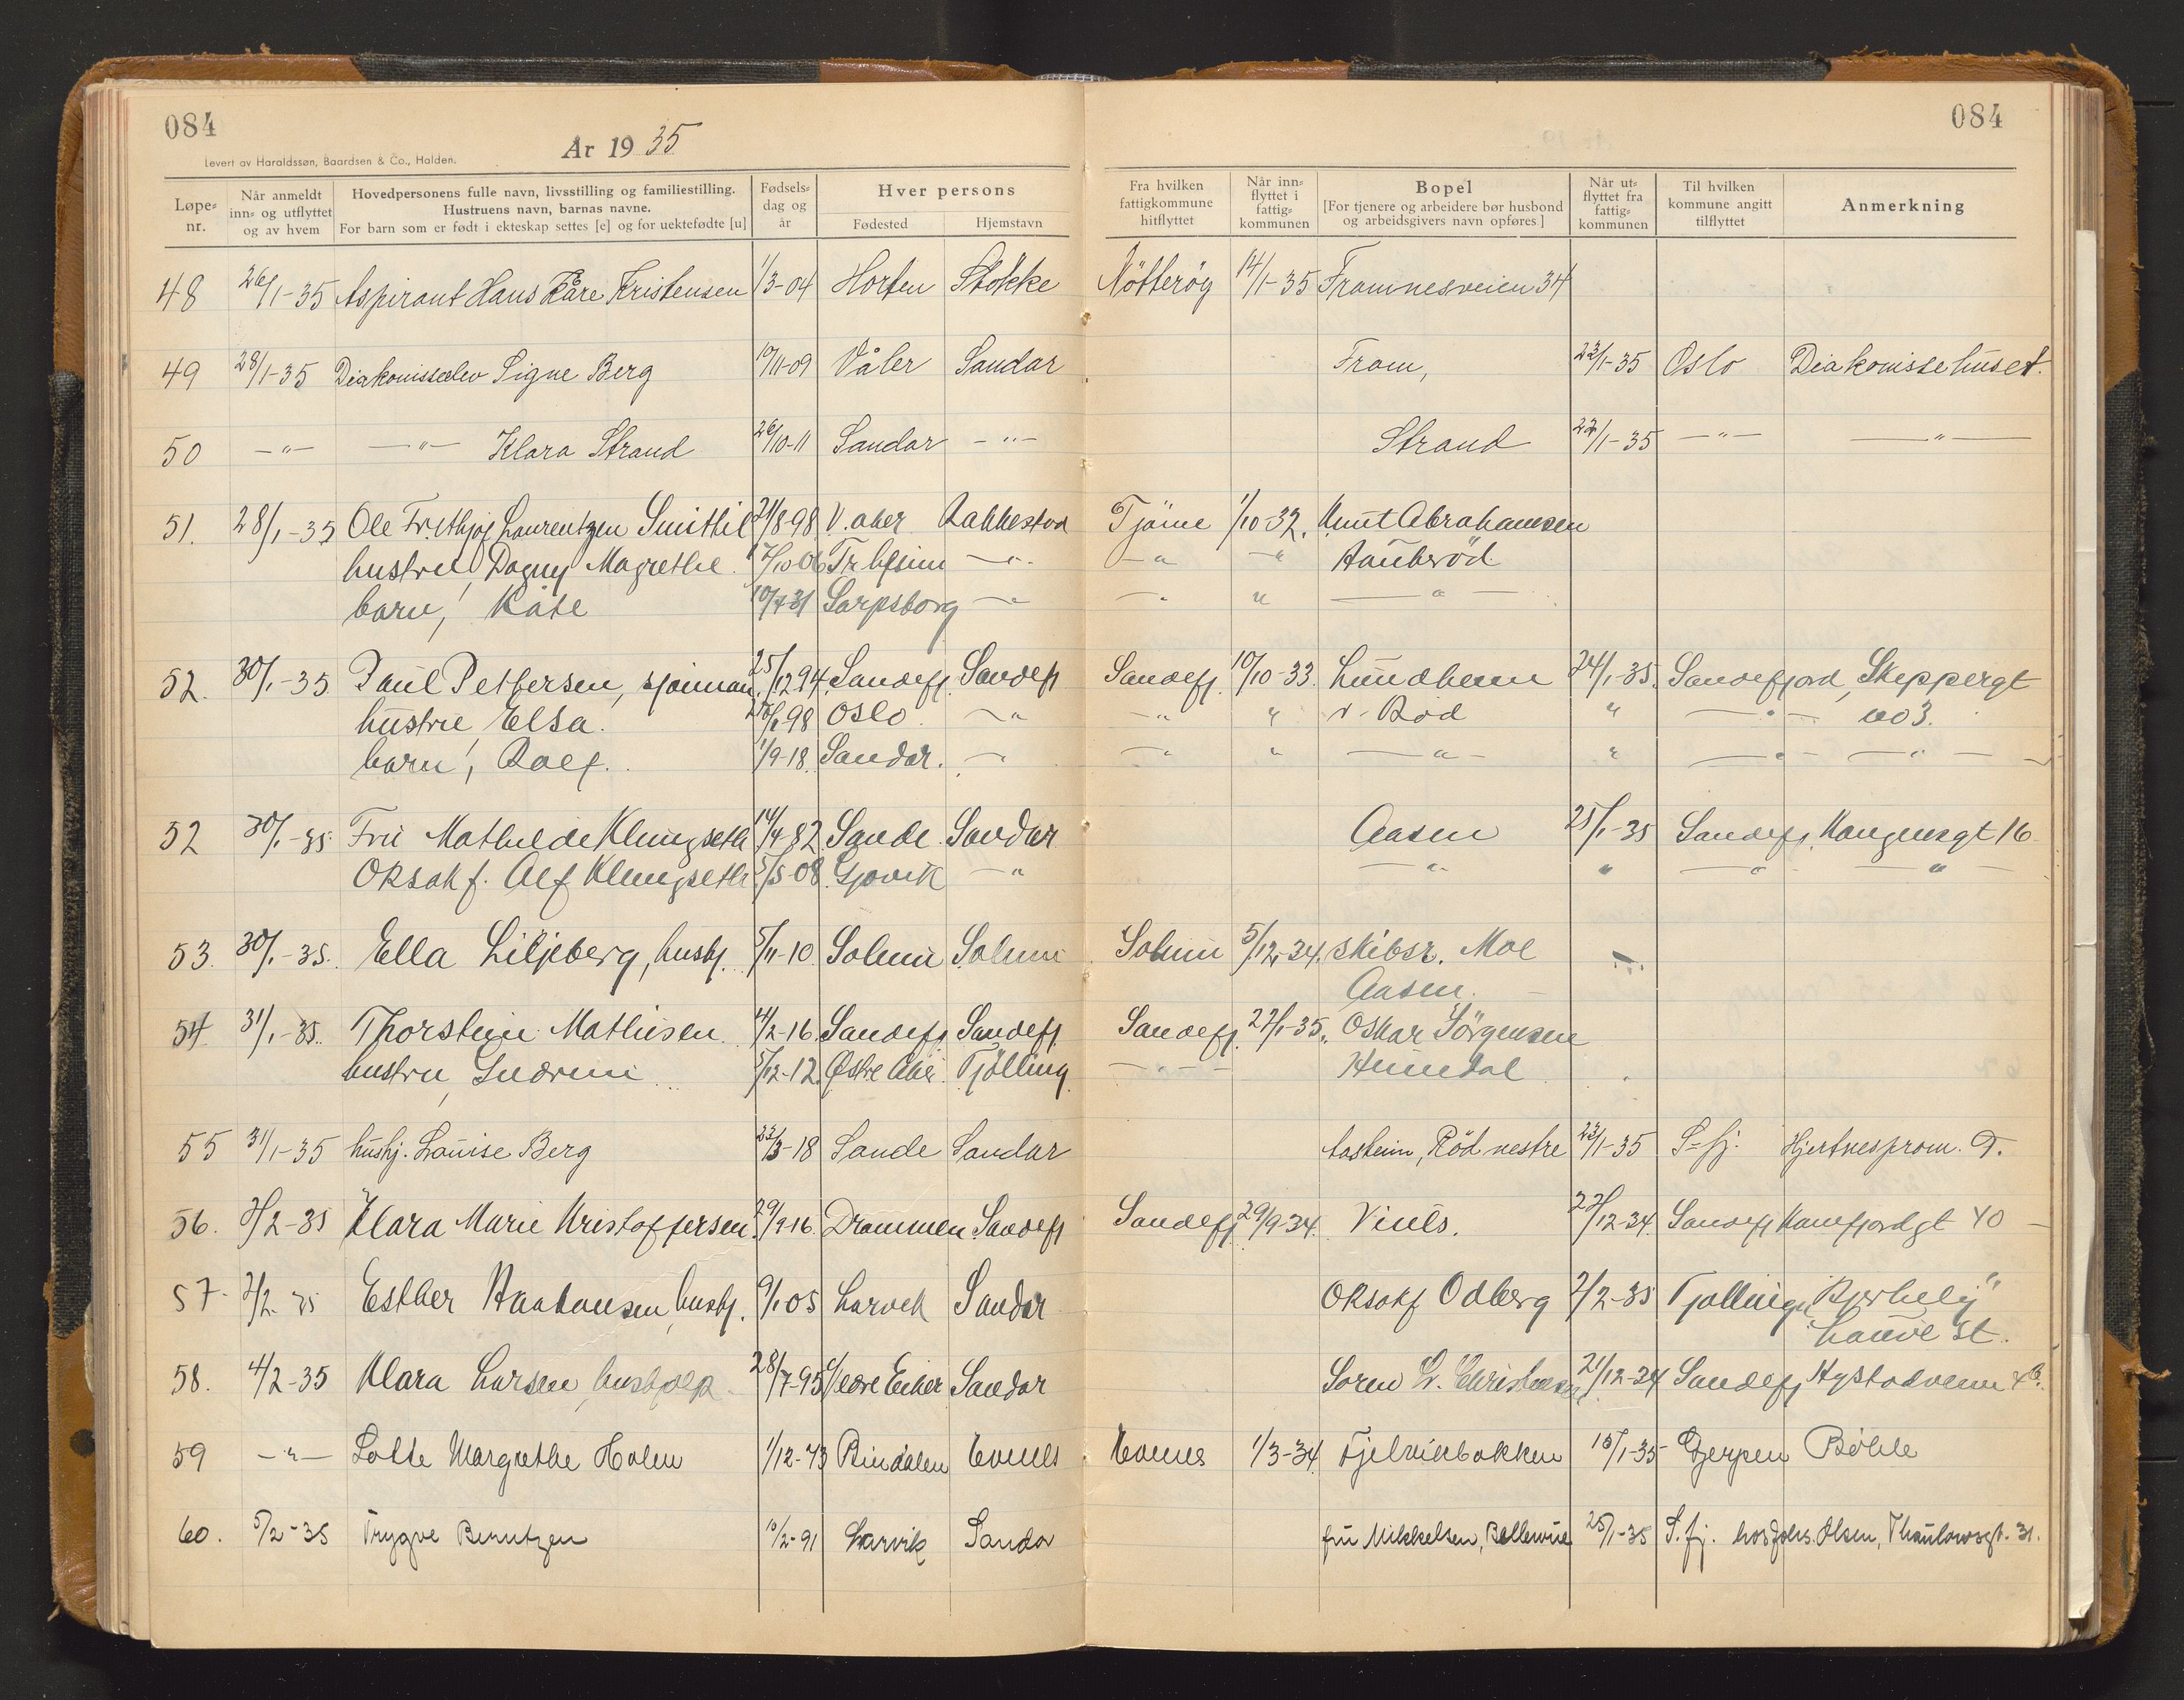 084
084
Levert av Haraldssøn, Baardsen & Co., Halden.
År 1935
Løpe-nr.
Når anmeldt inn- og utflyttet og av hvem
Hovedpersonens fulle navn, livsstilling og familiestilling.
Hustruens navn, barnas navne.
For barn som er født i ekteskap settes [e] og for uektefødte [u]
Fødsels-dag og år
Hver persons
Fødested
Hjemstavn
Fra hvilken fattigkommune hitflyttet
Når inn-flyttet i fattig-kommunen
Bopel
[For tjenere og arbeidere bør husbond og arbeidsgivers navn opføres]
Når ut-flyttet fra fattig-kommunen
Til hvilken kommune angitt tilflyttet
Anmerkning
48 26/1-35 Aspirant Hans Kåre Kristensen 1/3-04 Horten Stokke Nötterøy 14/1-35 Framnesveien 34
49 28/1-35 Diakonisseelev Signe Berg 19/11-09 Våler Sandar Fram, 23/1-35 Oslo Diakonissehuset.
50 -"- -"- Klara Strand 26/10-11 Sandar -"- Strand 22/1-35 -"- -"-
51. 28/1-35 Ole Fritthjof Laurentzen 21/8-98 V. aker Rakkestad Tjöme 1/10-32. Knut Abrahamsen
hustru, Dagny Magrethe 1/10-06 -"- -"- " Haukeröd
barn, Kåte 10/7-31 Sarpsborg -"- -"- " -"-
52. 30/1-35 Paul Pettersen, sjömann. 25/12 94 Sandefj. Sandefj Sandefj. 10/10-33. Lundheim 24/1-35. Sandefjord, Skippergt
hustru Elsa. 98 Oslo. -"- -"- " v. Rød " -"- no 3.
barn, Rolf. 1/9-18. Sandar. -"- -"- " -"- " -"- -"-
52 30/1-35. Fru Mathilde Klingseth 14/4 82 Sande. Sandar Aasen 25/1-35 Sandefj. Kongensgt 16
Oksahf. Alf Klingseth 5/5-08. Gjøvik -"- -"- " -"- -"-
53. 30/1-35. Ella Liljeberg, hushj. 5/11-10. Solum Solum Solum 5/12-34. skibsr. Moe
Aasen.
54 31/1-35. Thorstein Mathisen 4/2-16. Sandefj. Sandefj Sandefj. 22/1-35. Oskar Jörgensen
hustru, Gudrun 5/12-12. Østre Aker Tjølling -"- Heimdal
55 31/1-35 hushj. Louise Berg 23/3-18 Sande Sandar Aasheim, Röd nestre 23/1-35 S-fj. Hjertnesprom. 9.
56. 2/2-35 Klara Marie Kristoffersen. 29/9-16. Drammen Sandefj Sandefj 29/9-34. Vinds. 22/12-34. Sandefj Kamfjordgt 40
57. 2/2-35 Esther hushj. 9/1 05 Larvik Sandar Oksahf Odberg 2/2-35 Tjølling "Bjerkely"
Lauve st.
58. 4/2-35 Klara Larsen, hushjelp 28/7-95 Nedre Eiker Sandar Søren L. Christensen 21/12-34 Sandefj Hystadveien
59 -"- Lotte Margrethe Holen 1/12-73 Bindalen 1/3-34 Fjelvikbakken 15/1-35 Gjerpen Bøhle
60. 5/2-35 Trygve Berntzen 10/2-91 Larvik Sandar fru Mikkelsen, Bellevue 25/1-35 S.fj. hos Johs. Olsen, Thaulowsgt. 31.